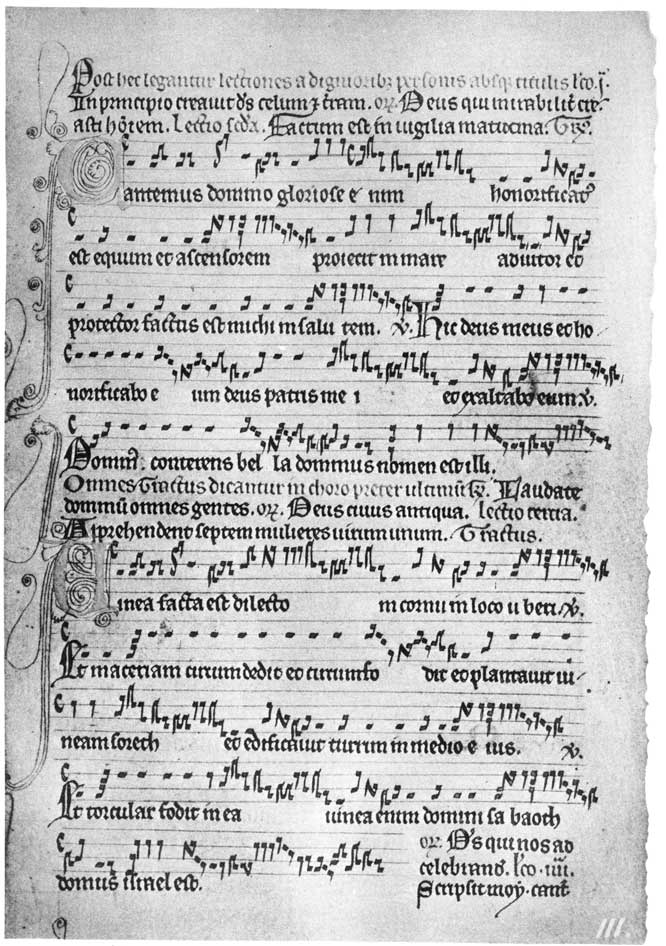 Post hec legantur lectiones a dignioribz personis absqz titulis lco. j.
In principio creauit ds celum z tram. orz. Deus qui mirabilit cre
asti hoiem. Lectio scda. Factum est in uigilia matutina. Trs.
Cantemus domino gloriose e nim honorificat
est equum et ascensorem proiecit in mare adiutor et
protector factus est michi in salu tem. v. Hic deus meus et ho
norificabo e um deus patris me i et exaltabo eum v.
Domin. conterens bel la dominus nomen est illi.
Omnes Tractus dicantur in choro preter ultimu Laudate
dominu omnes gentes. orz. Deus cuius antiqua. lectio tercia.
Apprehendent septem mulieres uirum unum. Tractus.
Uinea facta est dilecto in cornu in loco u beri. v.
Et maceriam circumdedit et circumfo dit et plantauit ui
neam soreth et edificauit turrim in medio e ius. v.
Et torcular fodit in ea uinea enim domini sa baoth
domus israel est.
orz. Ds qui nos ad
celebrand. lco. iiii.
Scripsit moy. cant
III.